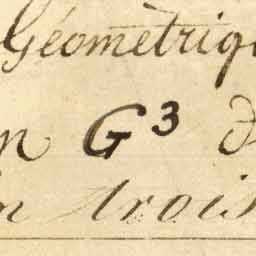 Géometriq
n G³ d
n trois